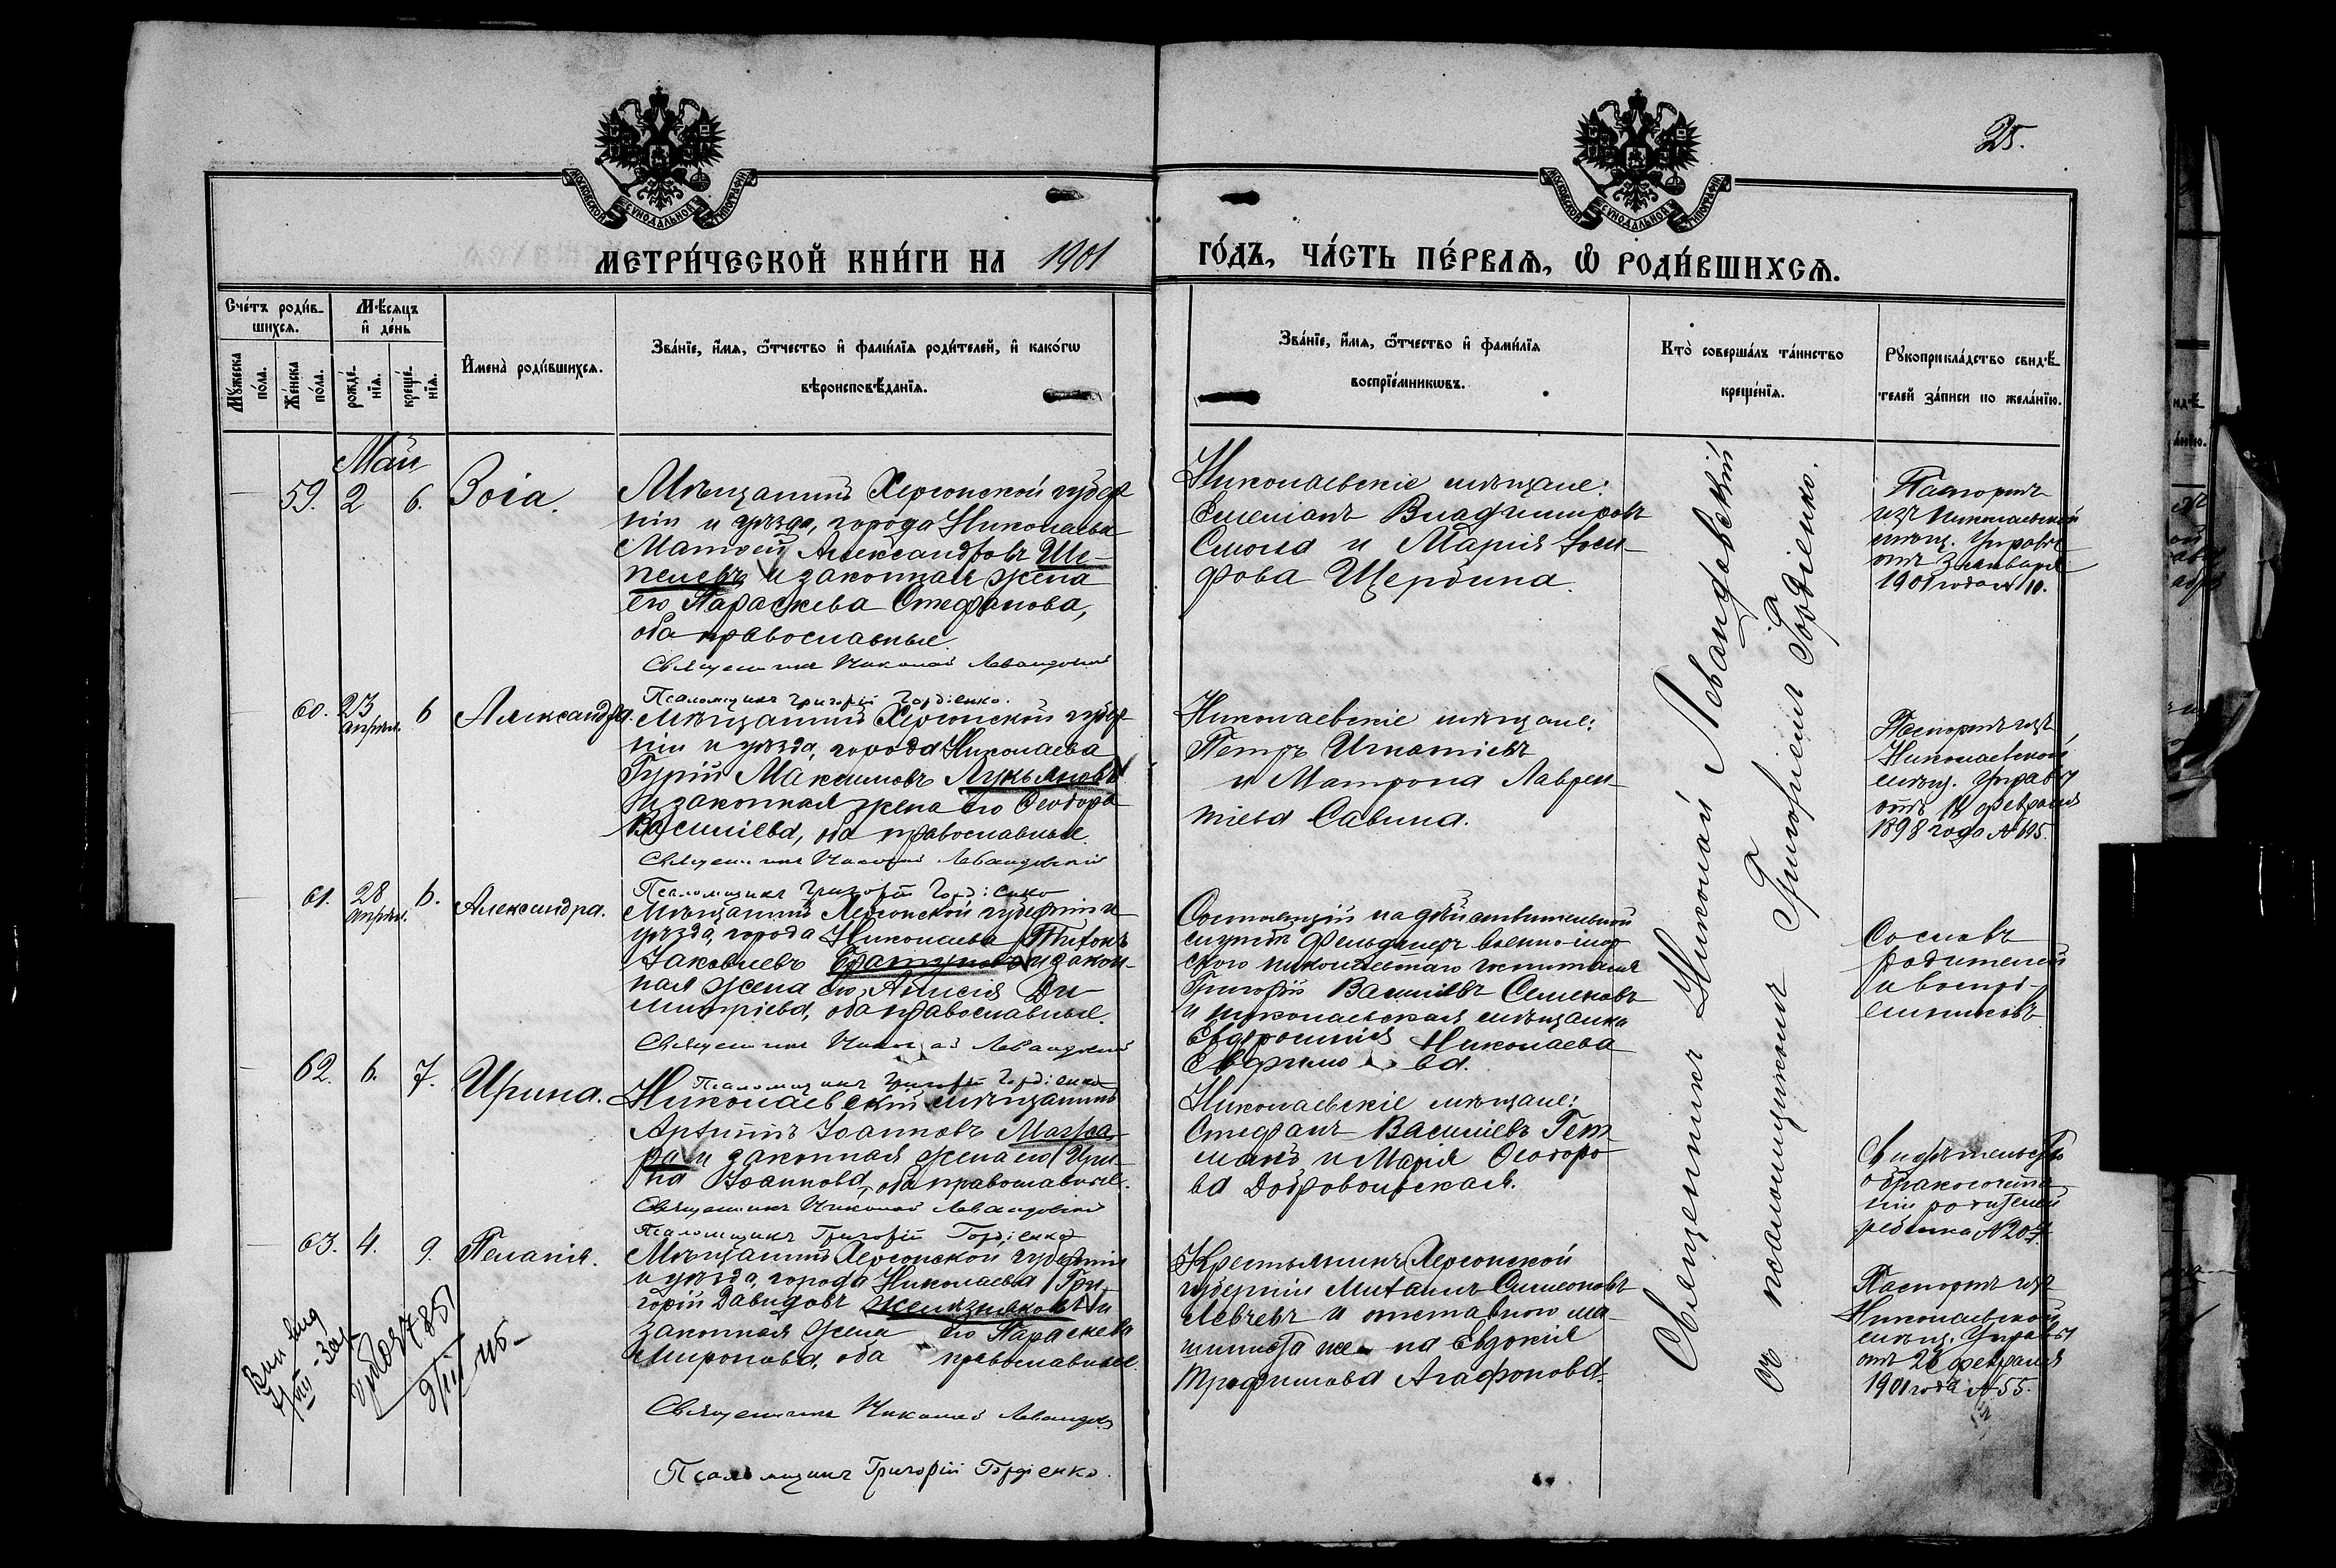 25.
МОСКОВСКОЙ СѴНОДАЛЬНОЙ ТИПОГРАФІИ
МОСКОВСКОЙ СѴНОДАЛЬНОЙ ТИПОГРАФІИ
МЕТРИ́ЧЕСКОЙ КНИ́ГИ НА 1901 ГО́ДЪ, ЧА́СТЬ ПЕ́РВАѦ, Ѡ҆ РОДИ́ВШИХСѦ.
Сче́тъ роди́в-
шихсѧ.
Мѣ́сѧцъ
и҆ де́нь
Мꙋ́жеска
по́ла.
Же́нска
по́ла.
рожде́-
нїѧ.
креще́-
нїѧ.
И҆мена̀ роди́вшихсѧ.
Зва́нїе, и҆́мѧ, ѻ҆́тчество и҆ фами́лїѧ роди́телей, и҆ како́гѡ
вѣроисповѣ́данїѧ.
Зва́нїе, и҆́мѧ, ѻ҆́тчество и҆ фами́лїѧ
воспрїе́мникѡвъ.
Кто̀ соверша́лъ та́инство
креще́нїѧ.
Рꙋкоприкла́дство свидѣ́-
телей за́писи по жела́нїю.
Май
59. 2 6. Зоіа.
Мѣщанинъ Херсонской губер-
ніи и уѣзда, города Николаева
Матѳей Александровъ Ше-
пелевъ и законная жена
его Параскева Стефанова,
оба православные.
Священникъ Николай Левандовскій
Псаломщикъ Григорій Гордіенко.
Николаевскіе мѣщане:
Емеліанъ Владимировъ
Смола и Марія Іоси-
фова Щербина.
Паспортъ
изъ Николаевской
мѣщ. Управы
отъ 3 января
1901 года № 10.
60. 23 апрѣл. 6 Александра.
Мѣщанинъ Херсонской губер-
ніи и уѣзда, города Николаева
Гурій Максимовъ Лукьяновъ
и законная жена его Ѳеодора
Василіева, оба православные.
Священникъ Николай Левандовскій
Псаломщикъ Григорій Гордіенко
Николаевскіе мѣщане:
Петръ Игнатіевъ
и Матрона Лаврен-
тіева Савина.
Паспортъ изъ
Николаевской
мѣщ. Управы
отъ 11 февраля
1898 года № 695.
61. 28 апрѣл. 6. Александра.
Мѣщанинъ Херсонской губерніи и
уѣзда, города Николаева Тихонъ
Іаковлевъ и закон-
ная жена его Анисія Ди-
митріева, оба православные.
Священникъ Николай Левандовскій
Псаломщикъ Григорій Гордіенко
Состоящій на дѣйствительной
службѣ фельдшеръ военно-мор-
ского николаевскаго госпиталя
Григорій Василіевъ Семеновъ
и николаевская мѣщанка
Евфросинія Николаева
Со словъ
родителей
и воспрі-
емниковъ
62. 6. 7. Ирина.
Николаевскій мѣщанинъ
Іоанновъ
и законная жена его Ири-
на Іоаннова, оба православные.
Священникъ Николай Левандовскій
Псаломщикъ Григорій Гордіенко
Николаевскіе мѣщане:
Стефанъ Василіевъ Гет-
манъ и Марія Ѳеодоро-
ва Добровольская.
Свидѣтельство
о бракосочета-
ніи родителей
ребенка № 207.
63. 4. 9. Пелагія.
Мѣщанинъ Херсонской губерніи
и уѣзда, города Николаева Гри-
горій Давидовъ Желѣзняковъ и
законная жена его Параскева
Миронова, оба православные.
Священникъ Николай Левандовскій
Псаломщикъ Григорій Гордіенко.
Крестьянинъ Херсонской
губерніи Михаилъ Симеоновъ
Левчевъ и отставного ма-
шиниста жена Евдокія
Трофимова Агафонова.
Паспортъ изъ
Николаевской
мѣщ. Управы
отъ 28 февраля
1901 года № 55.
Священникъ Николай Левандовскій
съ псаломщикомъ Григоріемъ Гордіенко.